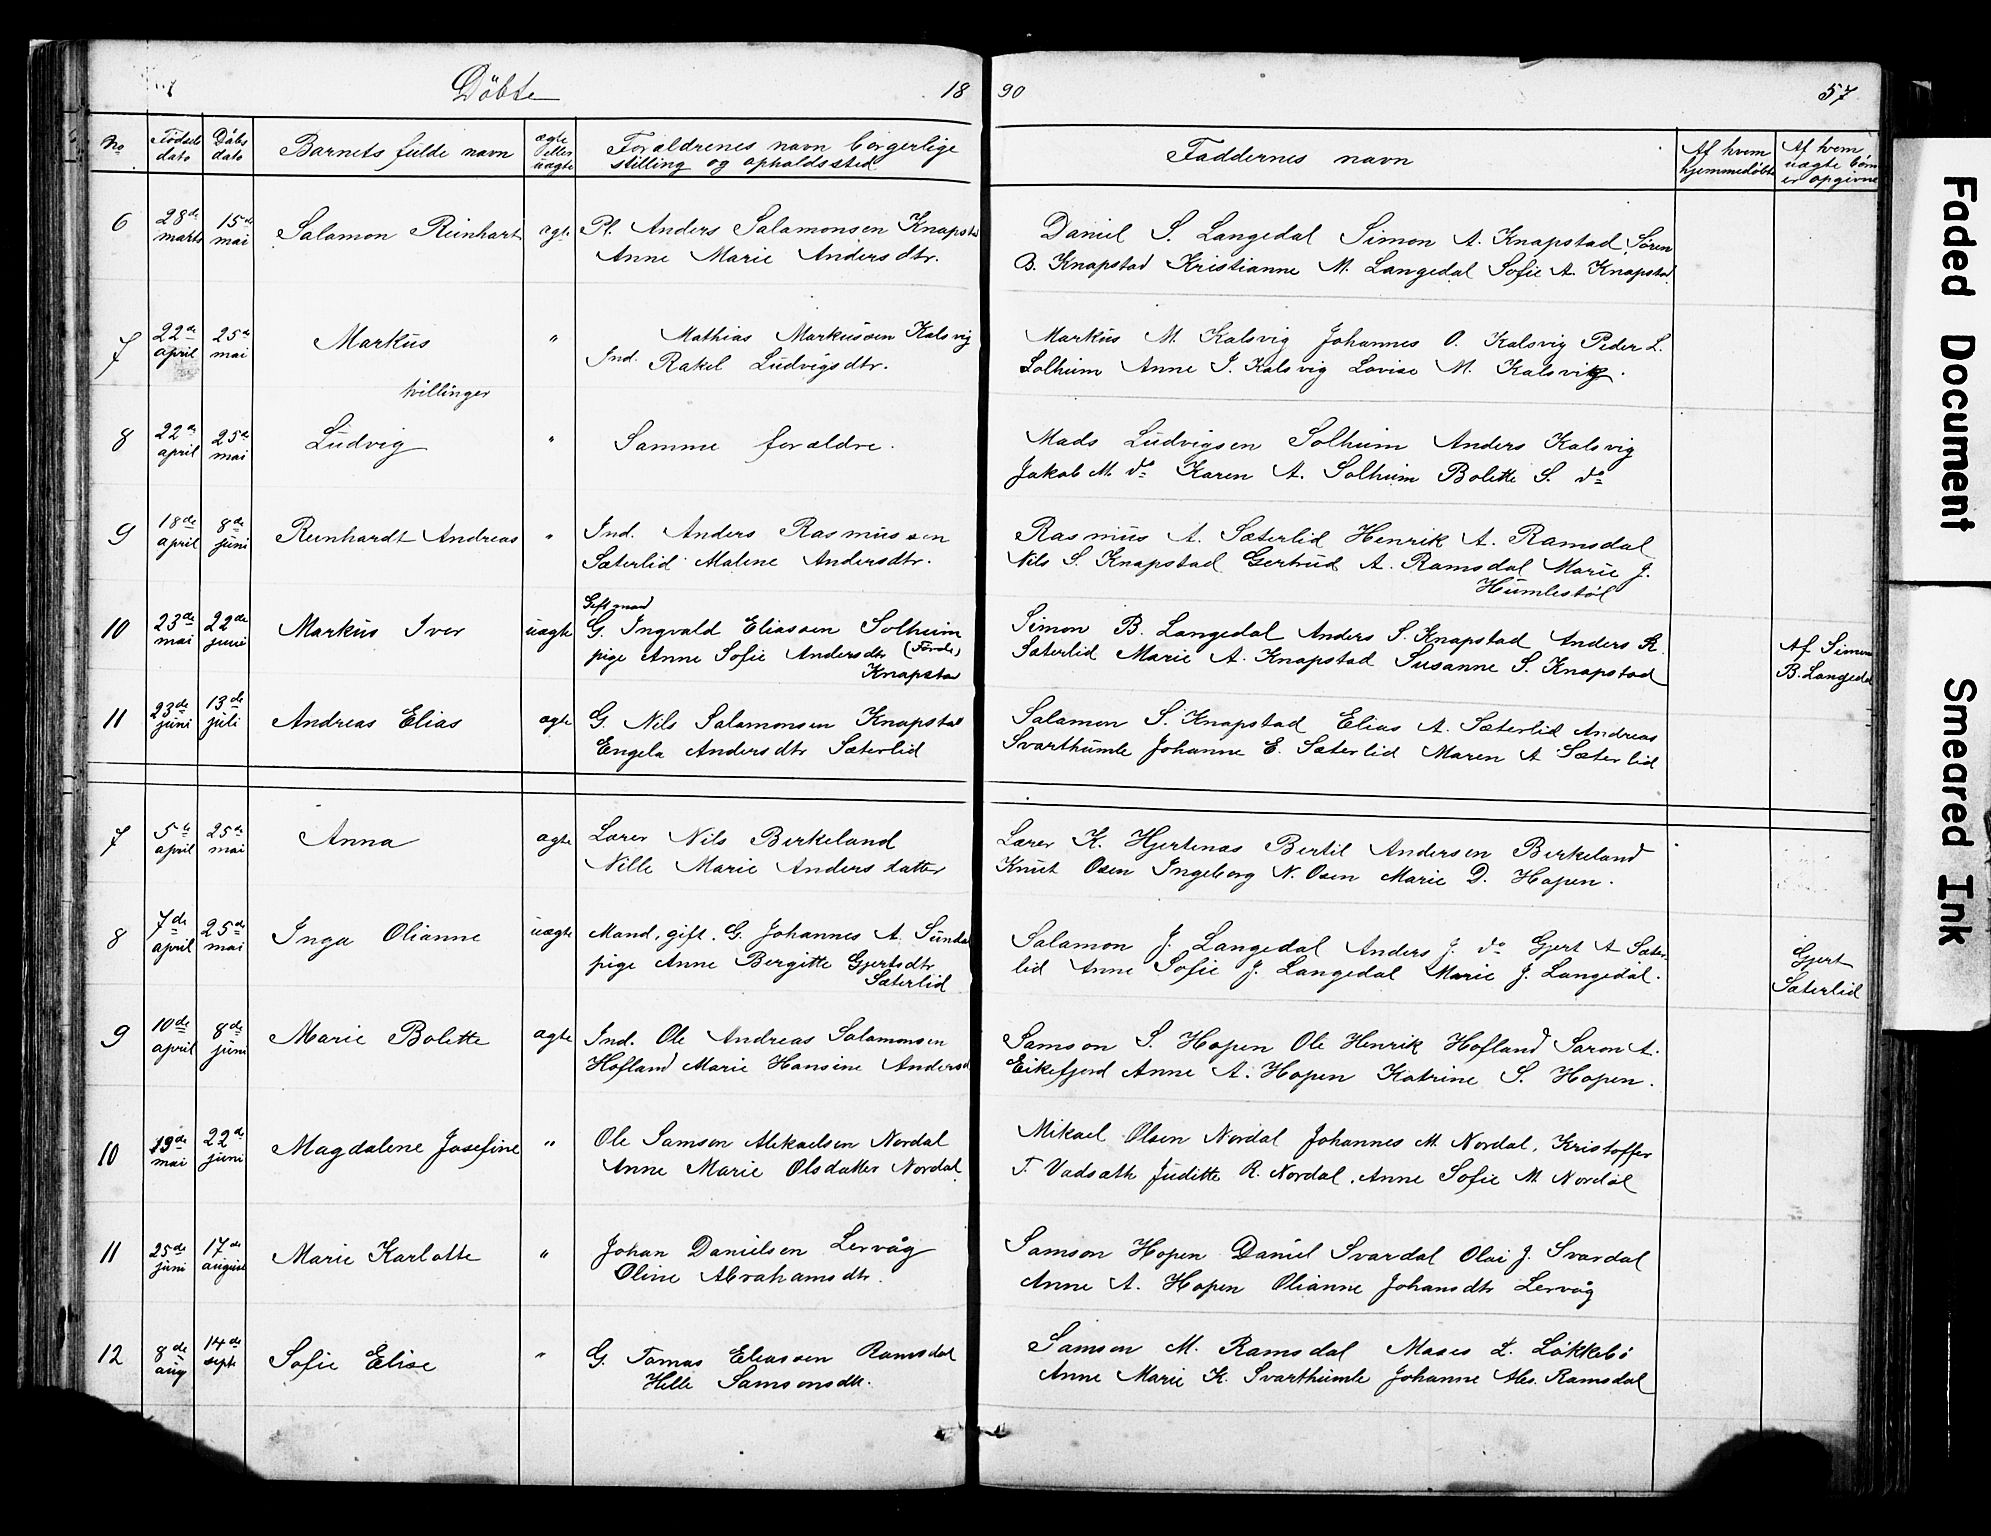 Döbte 18 90 57
No Födsels dato Döbs dato Barnets fulde navn ægte eller uægte Forældrenes navn borgerlige stilling og opholdssted Faddernes navn Af hvem hjemmedöbt Af hvem uægte börn er opgivne
6 28de marts 15de mai Salamon Reinhart ægte Pl. Anders Salamonsen Knapstad
Anne Marie Andersdtr.
Daniel S. Langedal Simon A. Knapstad Sören
B. Knapstad Kristianne M. Langedal Sofie A. Knapstad
7 22de april 25de mai Markus " Mathias Markussen Kalsvig
Ind. Rakel Ludvigsdtr.
Markus M. Kalsvig Johannes O. Kalsvig Peder L.
Solheim Anne J. Kalsvig Lovise M. Kalsvig.
tvillinger
8 22de april 25de mai Ludvig " Samme forældre.
Mads Ludvigsen Solheim Anders Kalsvig
Jakob M. do Karen A. Solheim Bolette S. do
9 18de april 8de juni Reinhardt Andreas " Ind. Anders Rasmussen
Sæterlid Malene Andersdtr.
Rasmus A. Sæterlid Henrik A. Ramsdal
Nils S. Knapstad Gertrud A. Ramsdal Marie J.
Humlestöl
10 23de mai 22de juni Markus Iver uægte Gift mand
G. Ingvald Eliassen Solheim
pige Anne Sofie Andersdtr (Förde)
Knapstad
Simon B. Langedal Anders S. Knapstad Anders R.
Sæterlid Marie A. Knapstad Susanne S. Knapstad
Af Simon
B. Langedal
11 23de juni 13de juli Andreas Elias ægte G. Nils Salamonsen Knapstad
Engela Andersdtr Sæterlid
Salamon S. Knapstad Elias A. Sæterlid Andreas
Svarthumle Johanne E. Sæterlid Maren A Sæterlid
7 5te april 25de mai Anna ægte Lærer Nils Birkeland
Nille Marie Andersdatter
Lærer K. Hjertenæs Bertil Andersen Birkeland
Knut Osen Ingeborg N. Osen Marie D. Hopen.
8 7de april 25de mai Inga Olianne uægte Mand, gift. G. Johannes A. Sundal
pige Anne Bergitte Gjertsdtr
Sæterlid
Salamon J. Langedal Anders J. do Gjert A Sæter
lid Anne Sofie J. Langedal Marie J. Langedal.
Gjert
Sæterlid
9 10de april 8de juni Marie Bolette ægte Ind. Ole Andreas Salamonsen
Hofland Marie Hansine Andersd
Samson S. Hopen Ole Henrik Hofland Saron A.
Eikefjord Anne A. Hopen Katrine S. Hopen.
10 19de mai 22de juni Magdalene Josefine " Ole Samson Mekaelsen Nordal
Anne Marie Olsdatter Nordal
Mikael Olsen Nordal Johannes M. Nordal, Kristoffer
T. Vadsæth Juditte R. Nordal, Anne Sofie M. Nordal
11 25de juni 17de august Marie Karlotte " Johan Danielsen Lervåg
Oline Abrahamsdtr.
Samson Hopen Daniel Svardal Olai J. Svardal
Anne A. Hopen Olianne Johansdtr Lervåg
12 8de aug 14de sept Sofie Elise " G. Tomas Eliassen Ramsdal
Helle Samsonsdtr.
Samson M. Ramsdal Moses L. Løkkebö
Anne Marie K. Svarthumle Johanne Als. Ramsdal
Faded Document
Smeared Ink